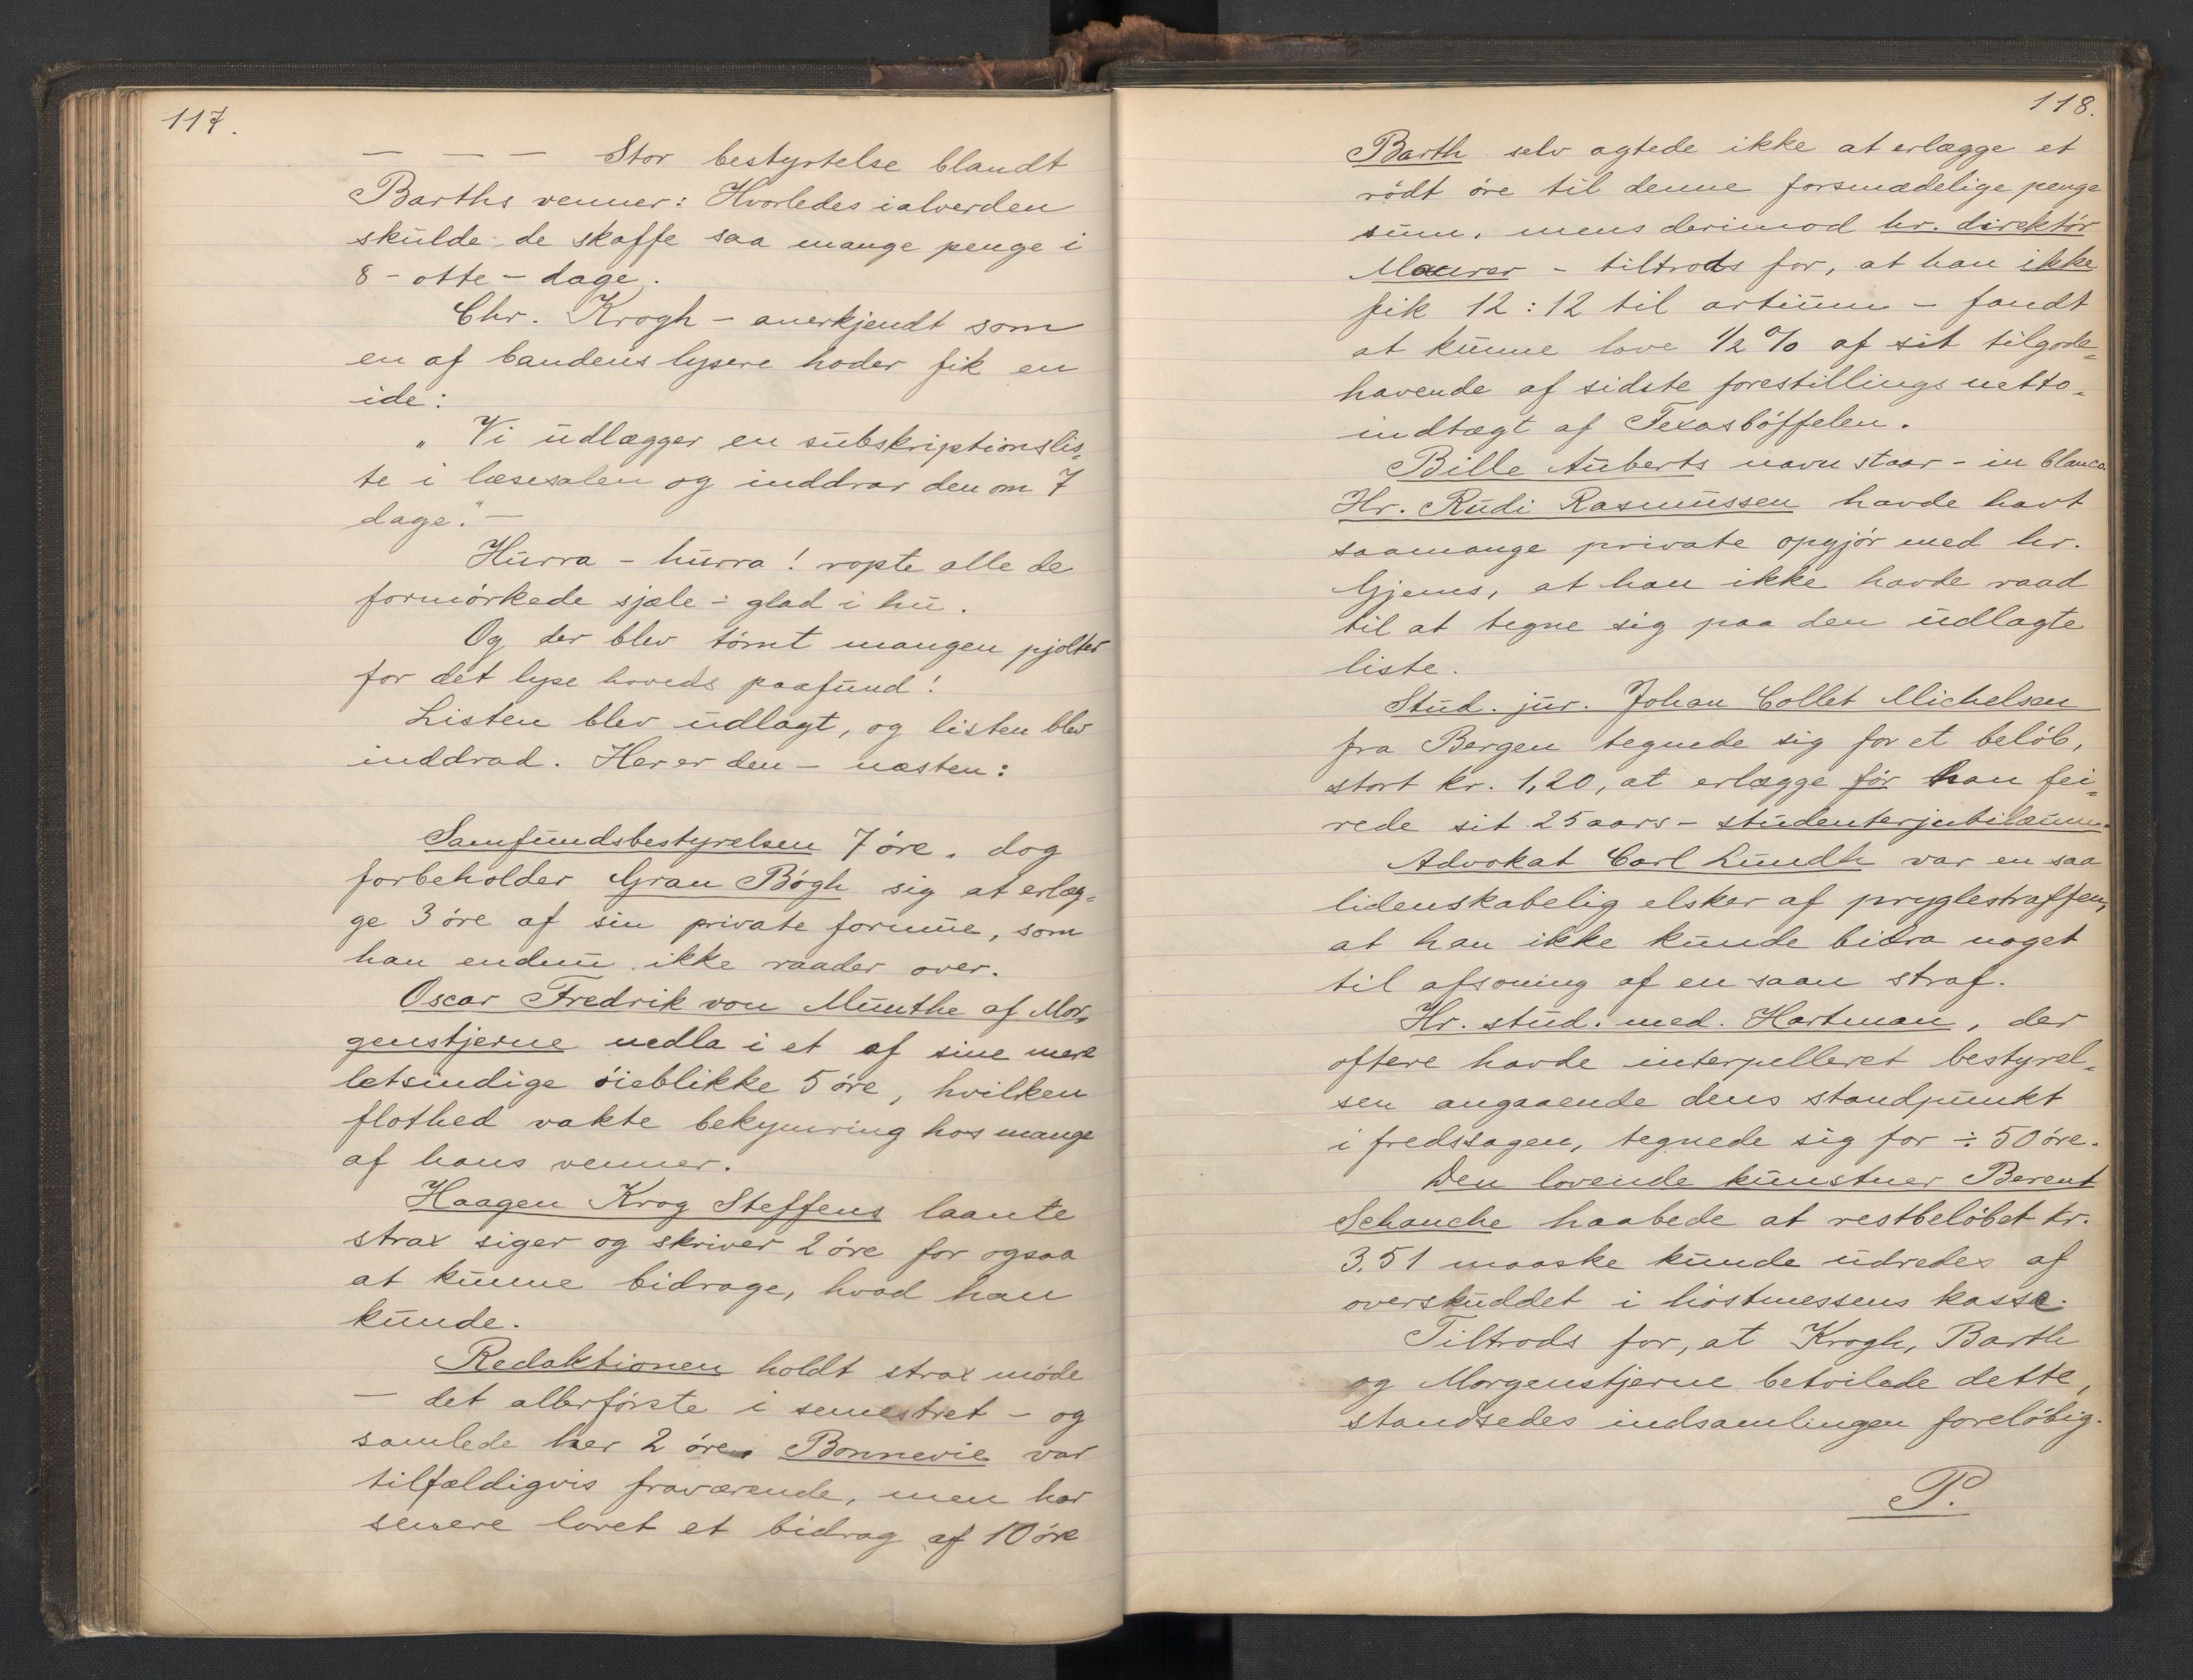 117.
— — — Stor bestyrtelse blandt
Barths venner: Hvorledes ialverden
skulde de skaffe saa mange penge i
8 - otte - dage.
Chr. Krogh - anerkjendt som
en af bandens lysere hoder fik en
ide:
„ Vi udlægger en subskriptionslis=
te i læsesalen og inddrar den om 7
dage." —
Hurra - hurra! ropte alle de
formørkede sjæle - glad i hu.
Og der blev tømt mangen pjolter
for det lyse hoveds paafund!
Listen blev udlagt, og listen blev
inddrad. Her er den - næsten:
Samfundsbestyrelsen 7 øre, dog
forbeholder Gran Bøgh sig at erlæg=
ge 3 øre af sin private formue, som
han endnu ikke raader over.
Oscar Fredrik von Munthe af Mor=
genstjerne nedla i et af sine mere
letsindige øieblikke 5 øre, hvilken
flothed vakte bekymring hos mange
af hans venner.
Haagen Krog Steffens laante
strax siger og skriver 2 øre for ogsaa
at kunne bidrage, hvad han
kunde.
Redaktionen holdt strax møde
— det allerførste i semestret - og
samlede her 2 øre. Bonnevie var
tilfældigvis fraværende, men har
senere lovet et bidrag af 10 øre
118.
Barth selv agtede ikke at erlægge et
rødt øre til denne forsmædelige penge
sum, mens derimod hr. direktør
Maurer - tiltrods for, at han ikke
fik 12 : 12 til artium - fandt
at kunne love 1/2 % af sit tilgode=
havende af sidste forestillings netto-
indtægt af Texasbøffelen.
Bille Auberts navn staar - in blanco
Hr. Rudi Rasmussen havde havt
saamange private opgjør med hr.
Gjems, at han ikke havde raad
til at tegne sig paa den udlagte
liste.
Stud. jur. Johan Collet Michelsen
fra Bergen tegnede sig for et beløb,
stort kr. 1,20, at erlægge før han fei=
rede sit 25 aars - studenterjubilæum.
Advokat Carl Lundh var en saa
lidenskabelig elsker af pryglestraffen,
at han ikke kunde bidra noget
til afsoning af en saan straf.
Hr. stud. med. Hartman, der
oftere havde interpelleret bestyrel=
sen angaaende dens standpunkt
i fredssagen, tegnede sig for ÷ 50 øre.
Den lovende kunstner Berent
Schanche haabede at restbeløbet kr.
3,51 maaske kunde udredes af
overskuddet i høstmessens kasse.
Tiltrods for, at Krogh, Barth
og Morgenstjerne betvilede dette,
standsedes indsamlingen foreløbig.
P.